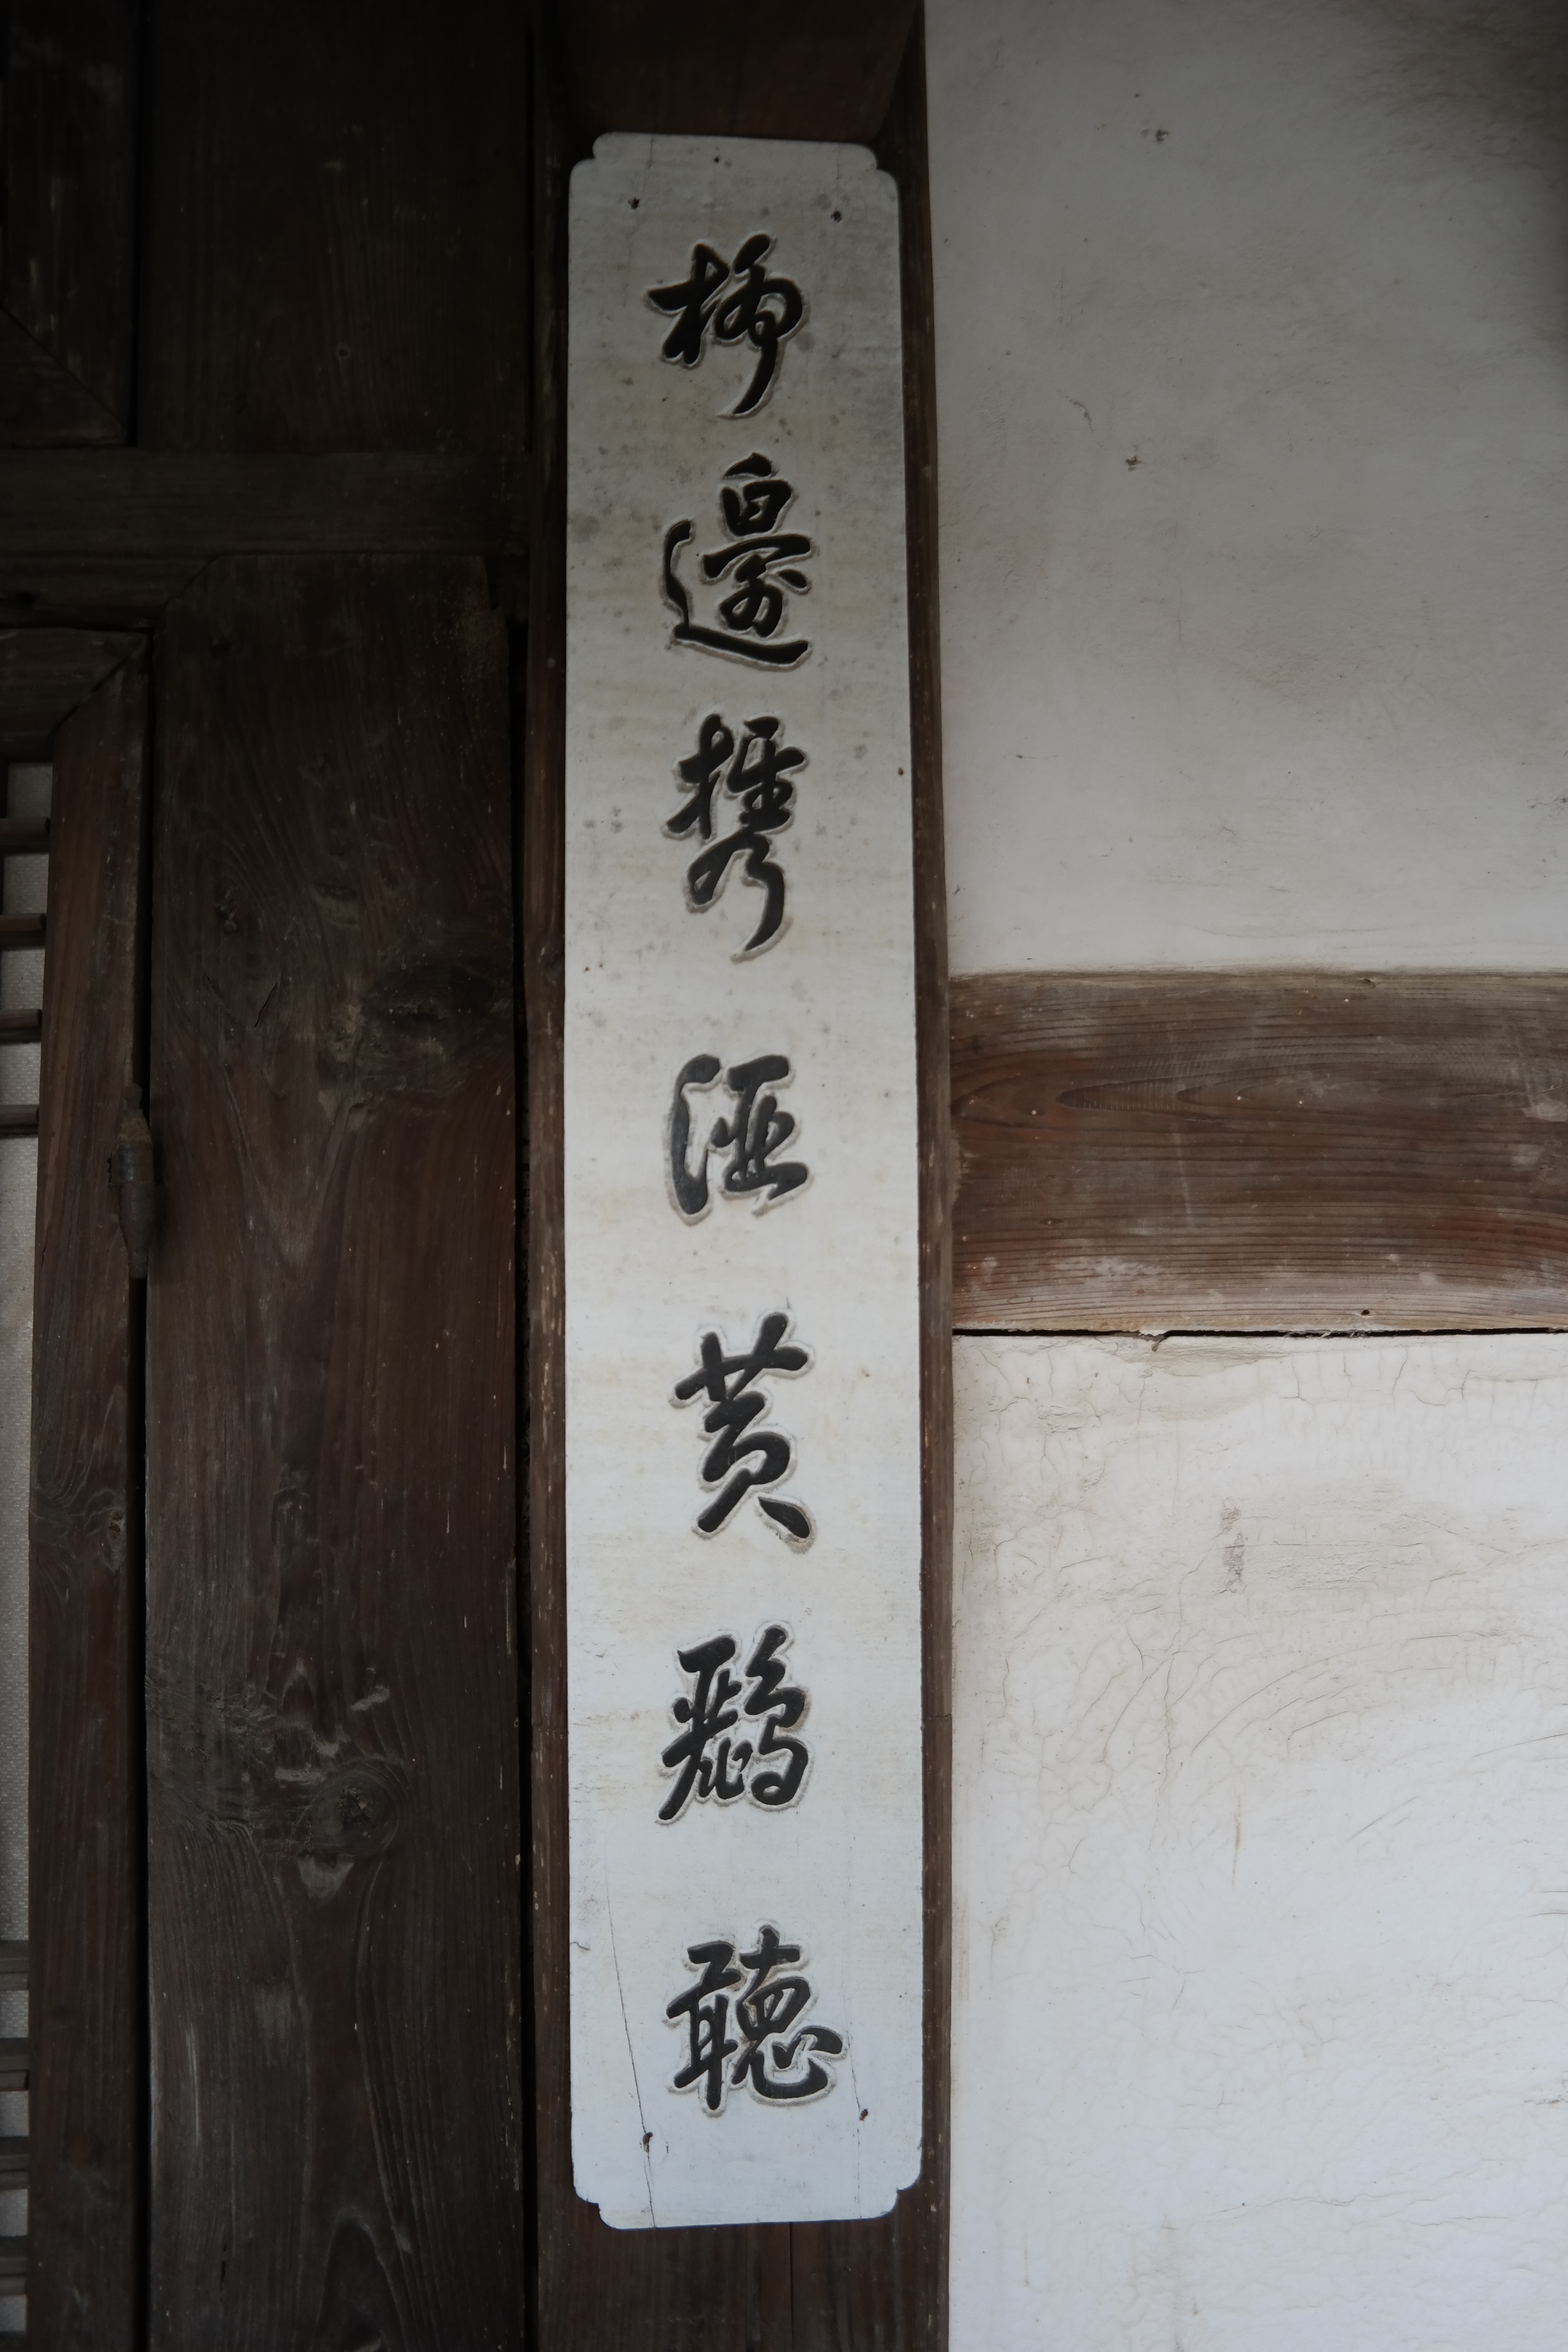 柳邊携酒黃鸝聽